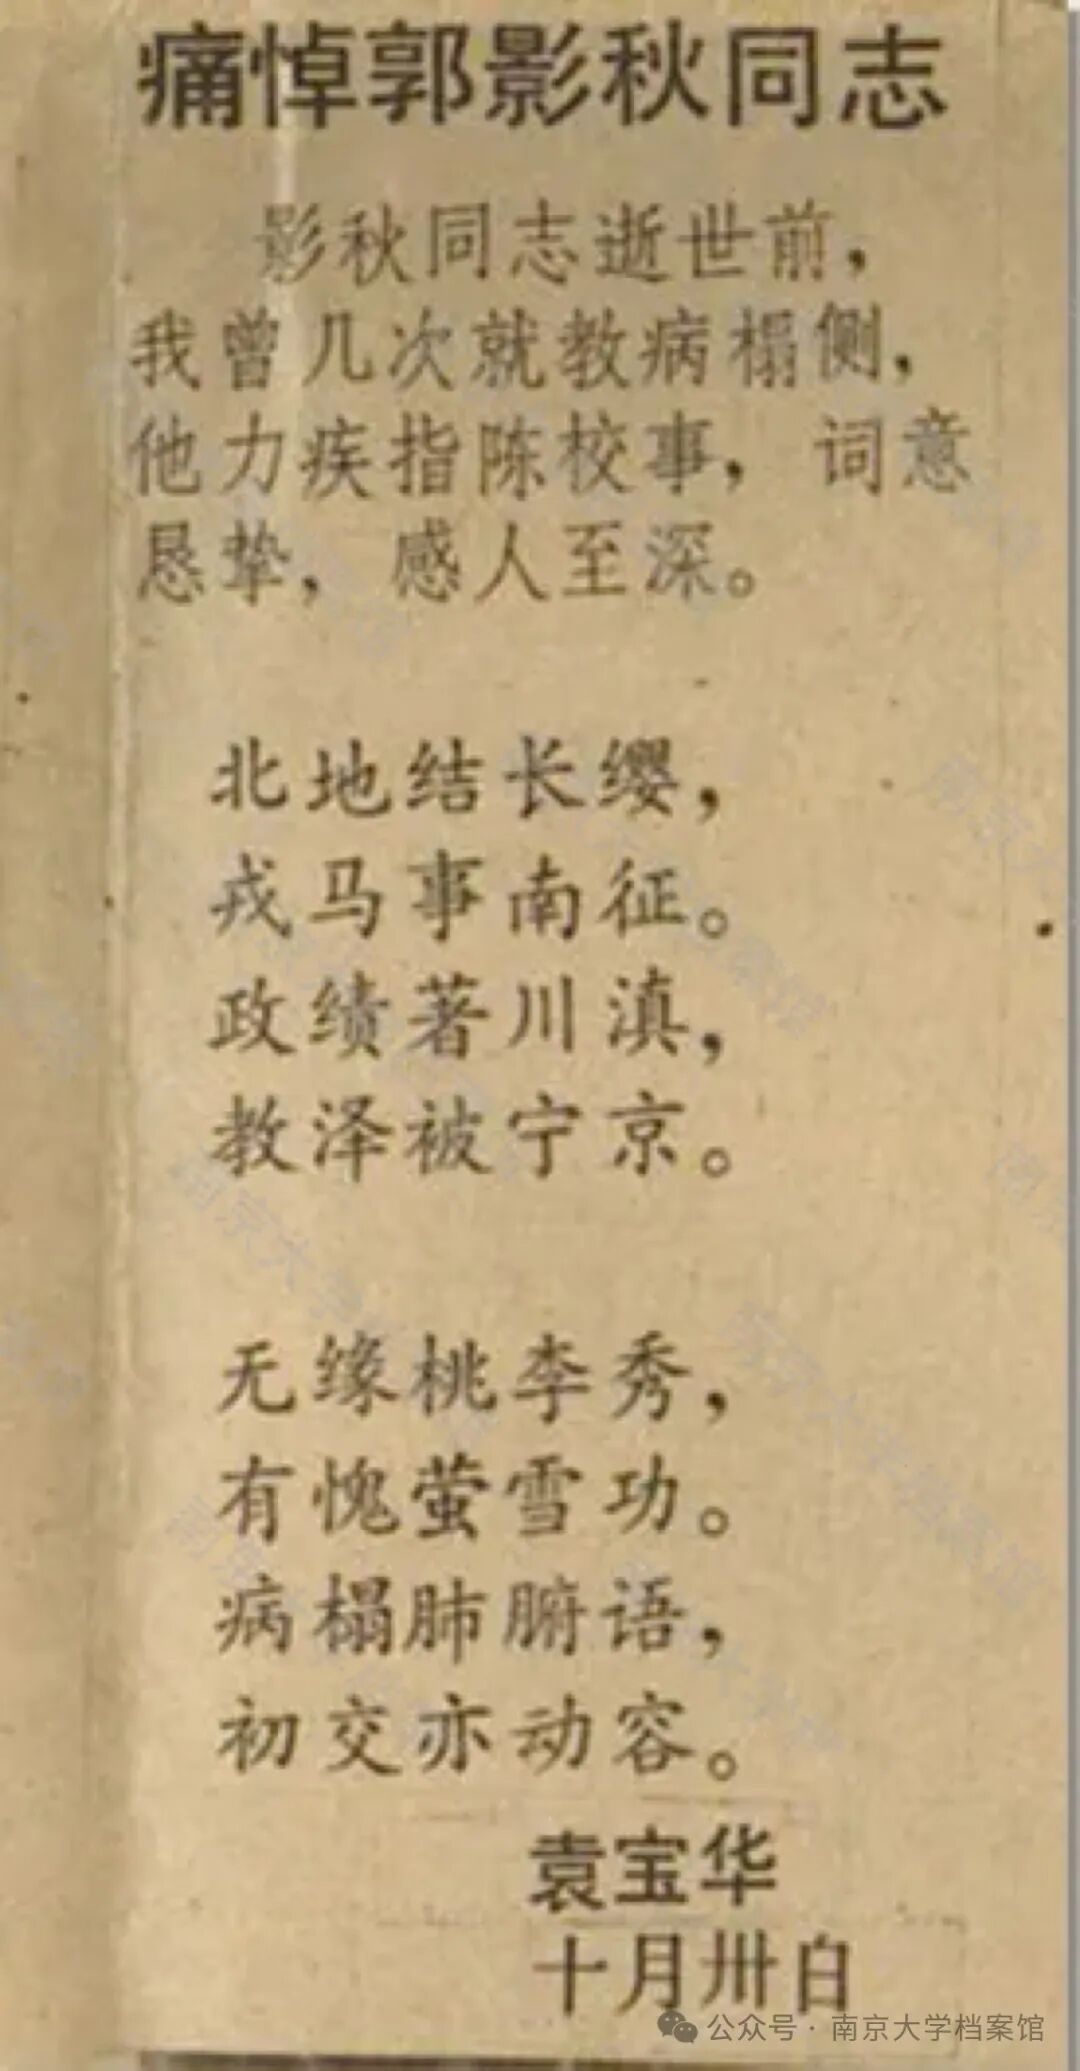 痛悼郭影秋同志
影秋同志逝世前，
我曾几次就教病榻侧，
他力疾指陈校事，词意
恳挚，感人至深。
北地结长缨，
戎马事南征。
政绩著川滇，
教泽被宁京。
无缘桃李秀，
有愧萤雪功。
病榻肺腑语，
初交亦动容。
袁宝华
十月卅白
公众号·南京大学档案馆